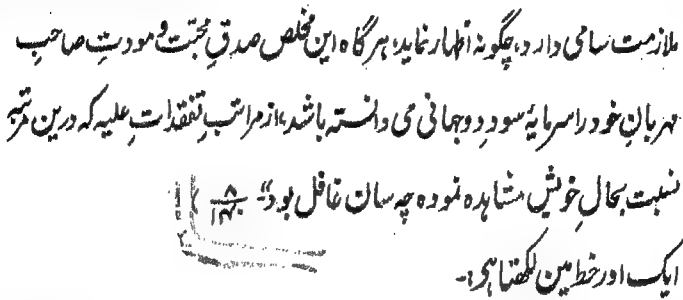 ملازمت سامی دارد، چگونه اظهار نماید، ہر گاہ این مخلص صدقِ محبّت و مودتِ صاحبِ
مہربانِ خود را سرمایۂ سودِ دوجہانی می دانستہ باشد، از مراتبِ تفقداتِ علیہ کہ درین مرتبہ
نسبت بحالِ خویش مشاہدہ نمودہ چہ سان غافل بود“۔
ایک اور خط مین لکھتا ہی:۔